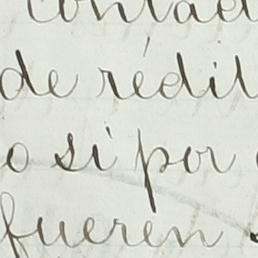 contad
de rédit
o si por
fueren